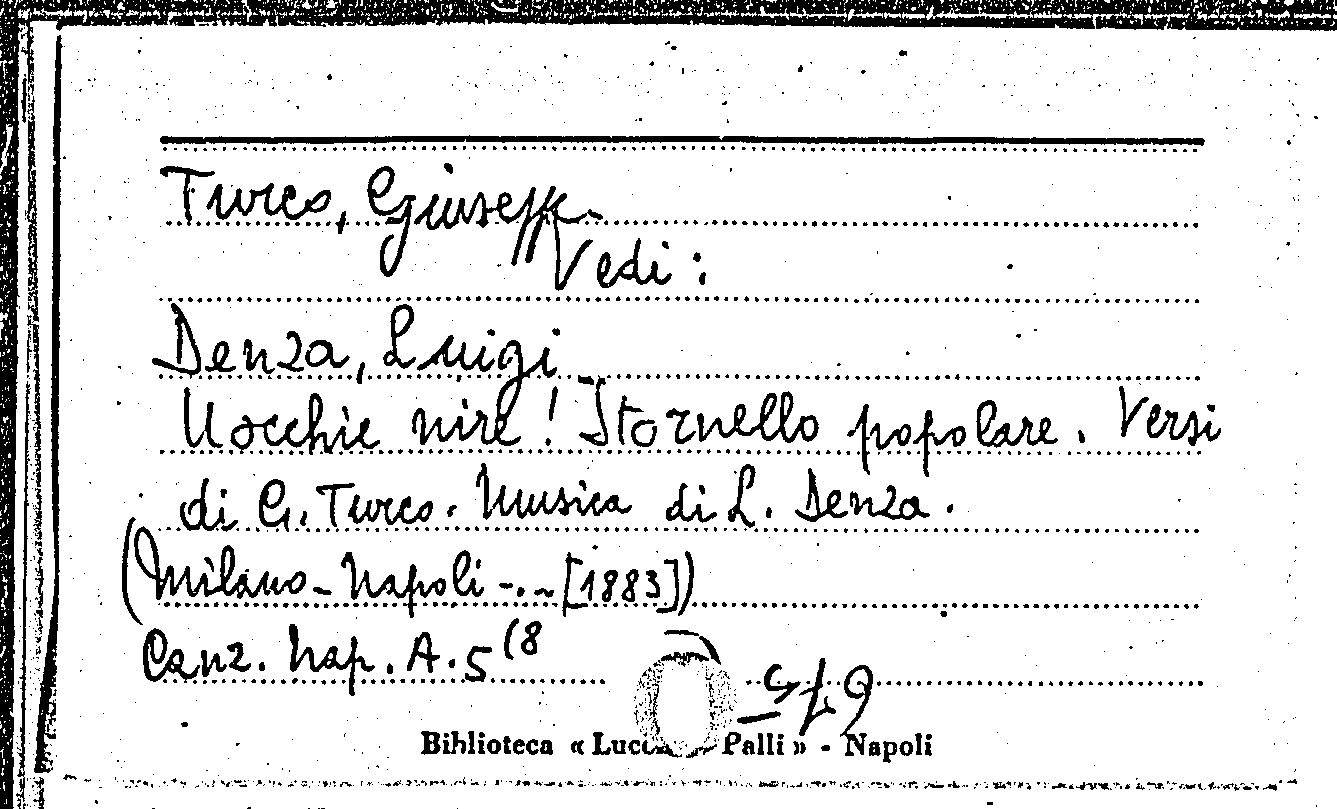 Turco, Giuseppe
Vedi :
Denza, Luigi
Uocchie nire! Stornello popolare. Versi
di G. Turco. Musica di L. Denza.
(Milano-Napoli -.- [1883])
Canz. Nap. A.5 (8
Biblioteca « Palli » - Napoli